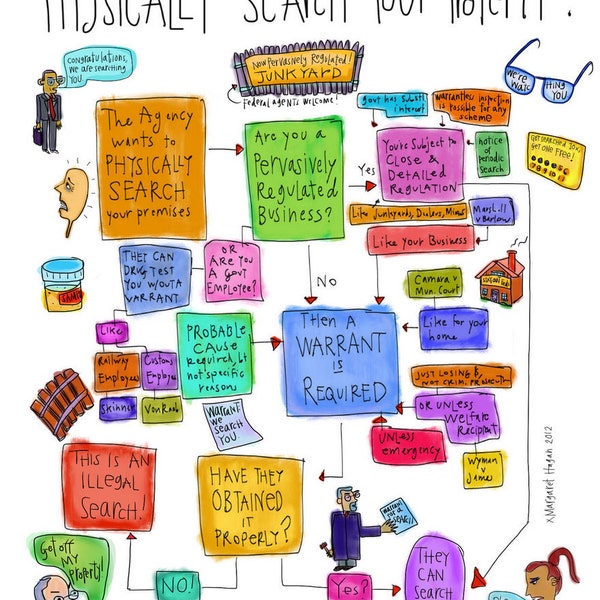 PHYSICALLY SEARCH YOUR PROPERTY?
Congratulations,
we are searching
you
Now Pervasively Regulated!
JUNKYARD
Federal agents welcome!
Govt has Substl
interest
warrantless inspection
is possible for any
scheme
we're
watc
hing
you
The Agency
wants to
PHYSICALLY
SEARCH
your premises
Are you a
Pervasively
Regulated
Business?
Yes
Yours Subject to
Close &
Detailed
Regulation
notice
of
periodic
search
Get searched 10x,
get one free!
Like Junkyards, Dealers, Mines
Marshall
v Barlow
Like Your Business
They can
drug test
you w/outa
warrant
OR
Are you
a govt
employee?
NO
Camara v
Mun. Court
Like for your
home
Like
Railway
Employees
Customs
Employees
Skinner
Von Raab
Probable
cause
required, bt
not specific
reasons
Then a
WARRANT
is
Required
Just losing $,
not crim. prosecut
OR UNLESS
Welfare
Recipient
Warrant:
we
search
you.
UNLESS
emergency
Wyman
v
James
x Margaret Hagan 2012
This is an
ILLEGAL
Search!
Have they
OBTAINED
it
properly?
warrant
for a
SEARCH
Get off
my
property!
NO!
Yes?
They
can
Search